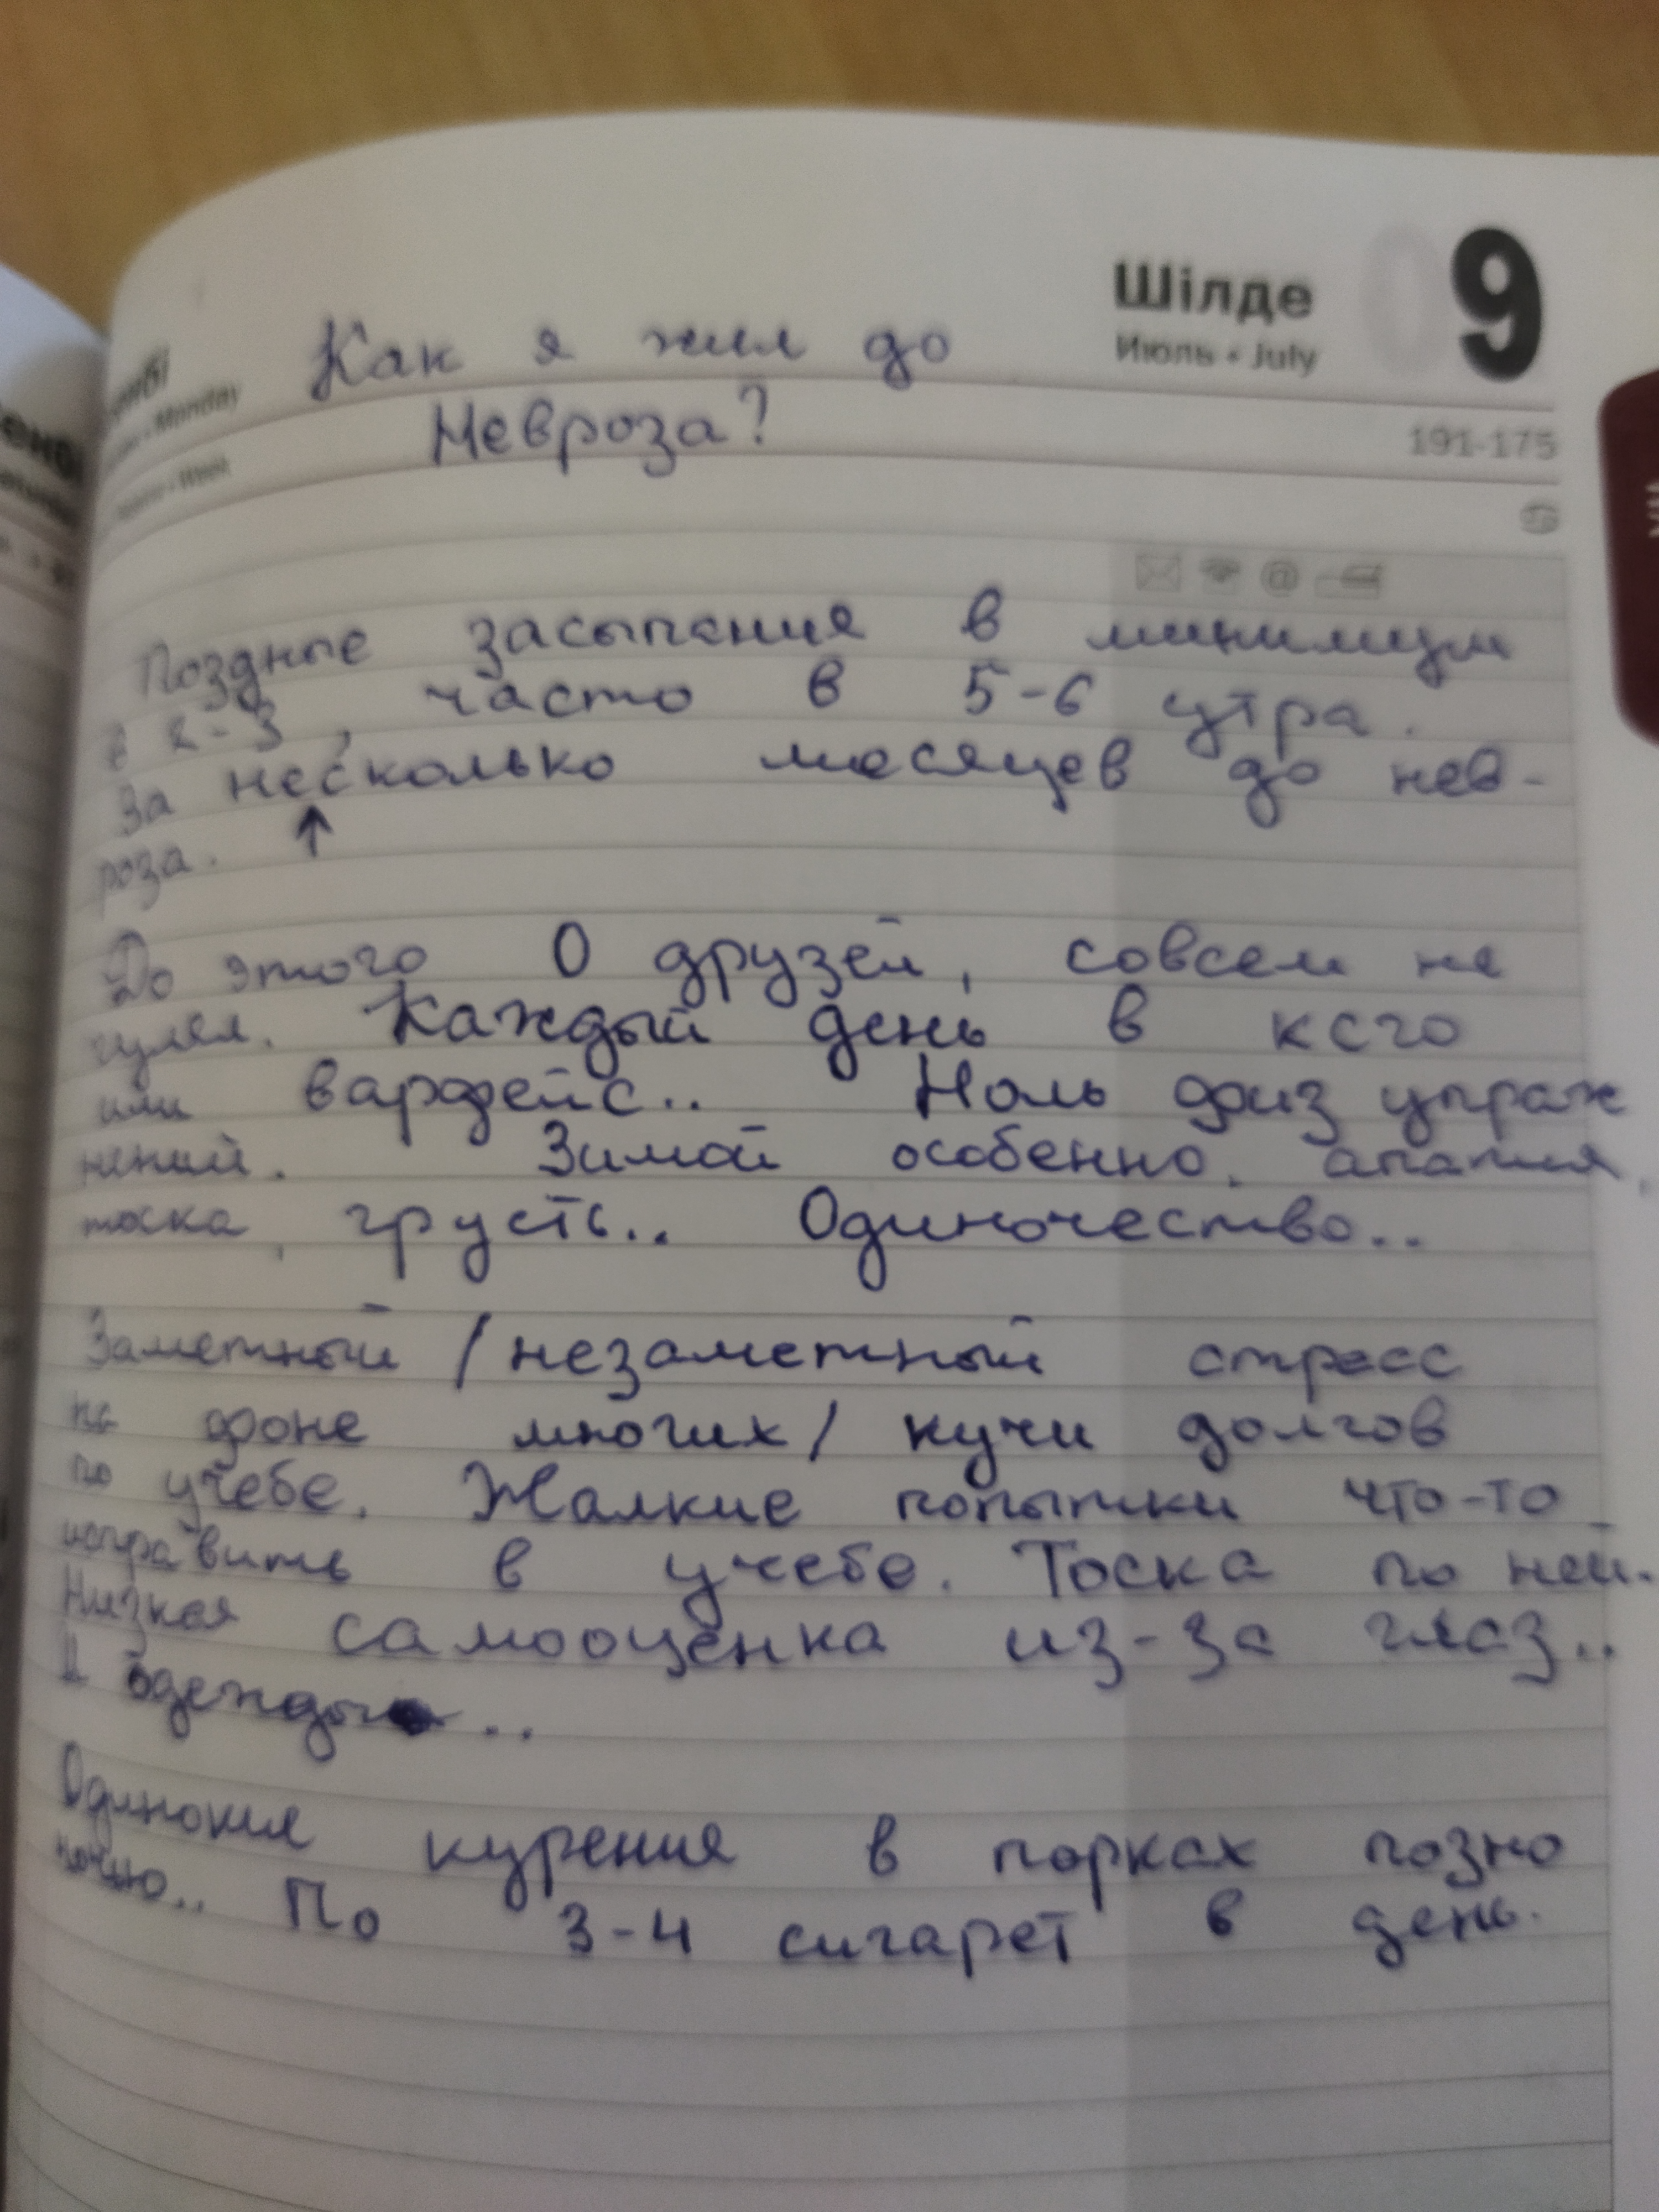 Шілде 9
Июль • July
Monday
Week
191-175
Как я жил до
Невроза?
Поздные засыпения в минимум
в 2-3, часто в 5-6 утра.
За несколько месяцев до нев-
роза. ↑
До этого 0 друзей, совсем не
гулял. Каждый день в ксго
или варфейс.. Ноль физ упраж
нений. Зимой особенно, апатия,
тоска, грусть.. Одиночество..
Заметный / незаметный стресс
на фоне многих / кучи долгов
по учебе. Жалкие попытки что-то
исправить в учебе. Тоска по ней.
Низкая самооценка из-за глаз..
И одежды ..
Одинокия курения в парках позно
ночью.. По 3-4 сигарет в день.